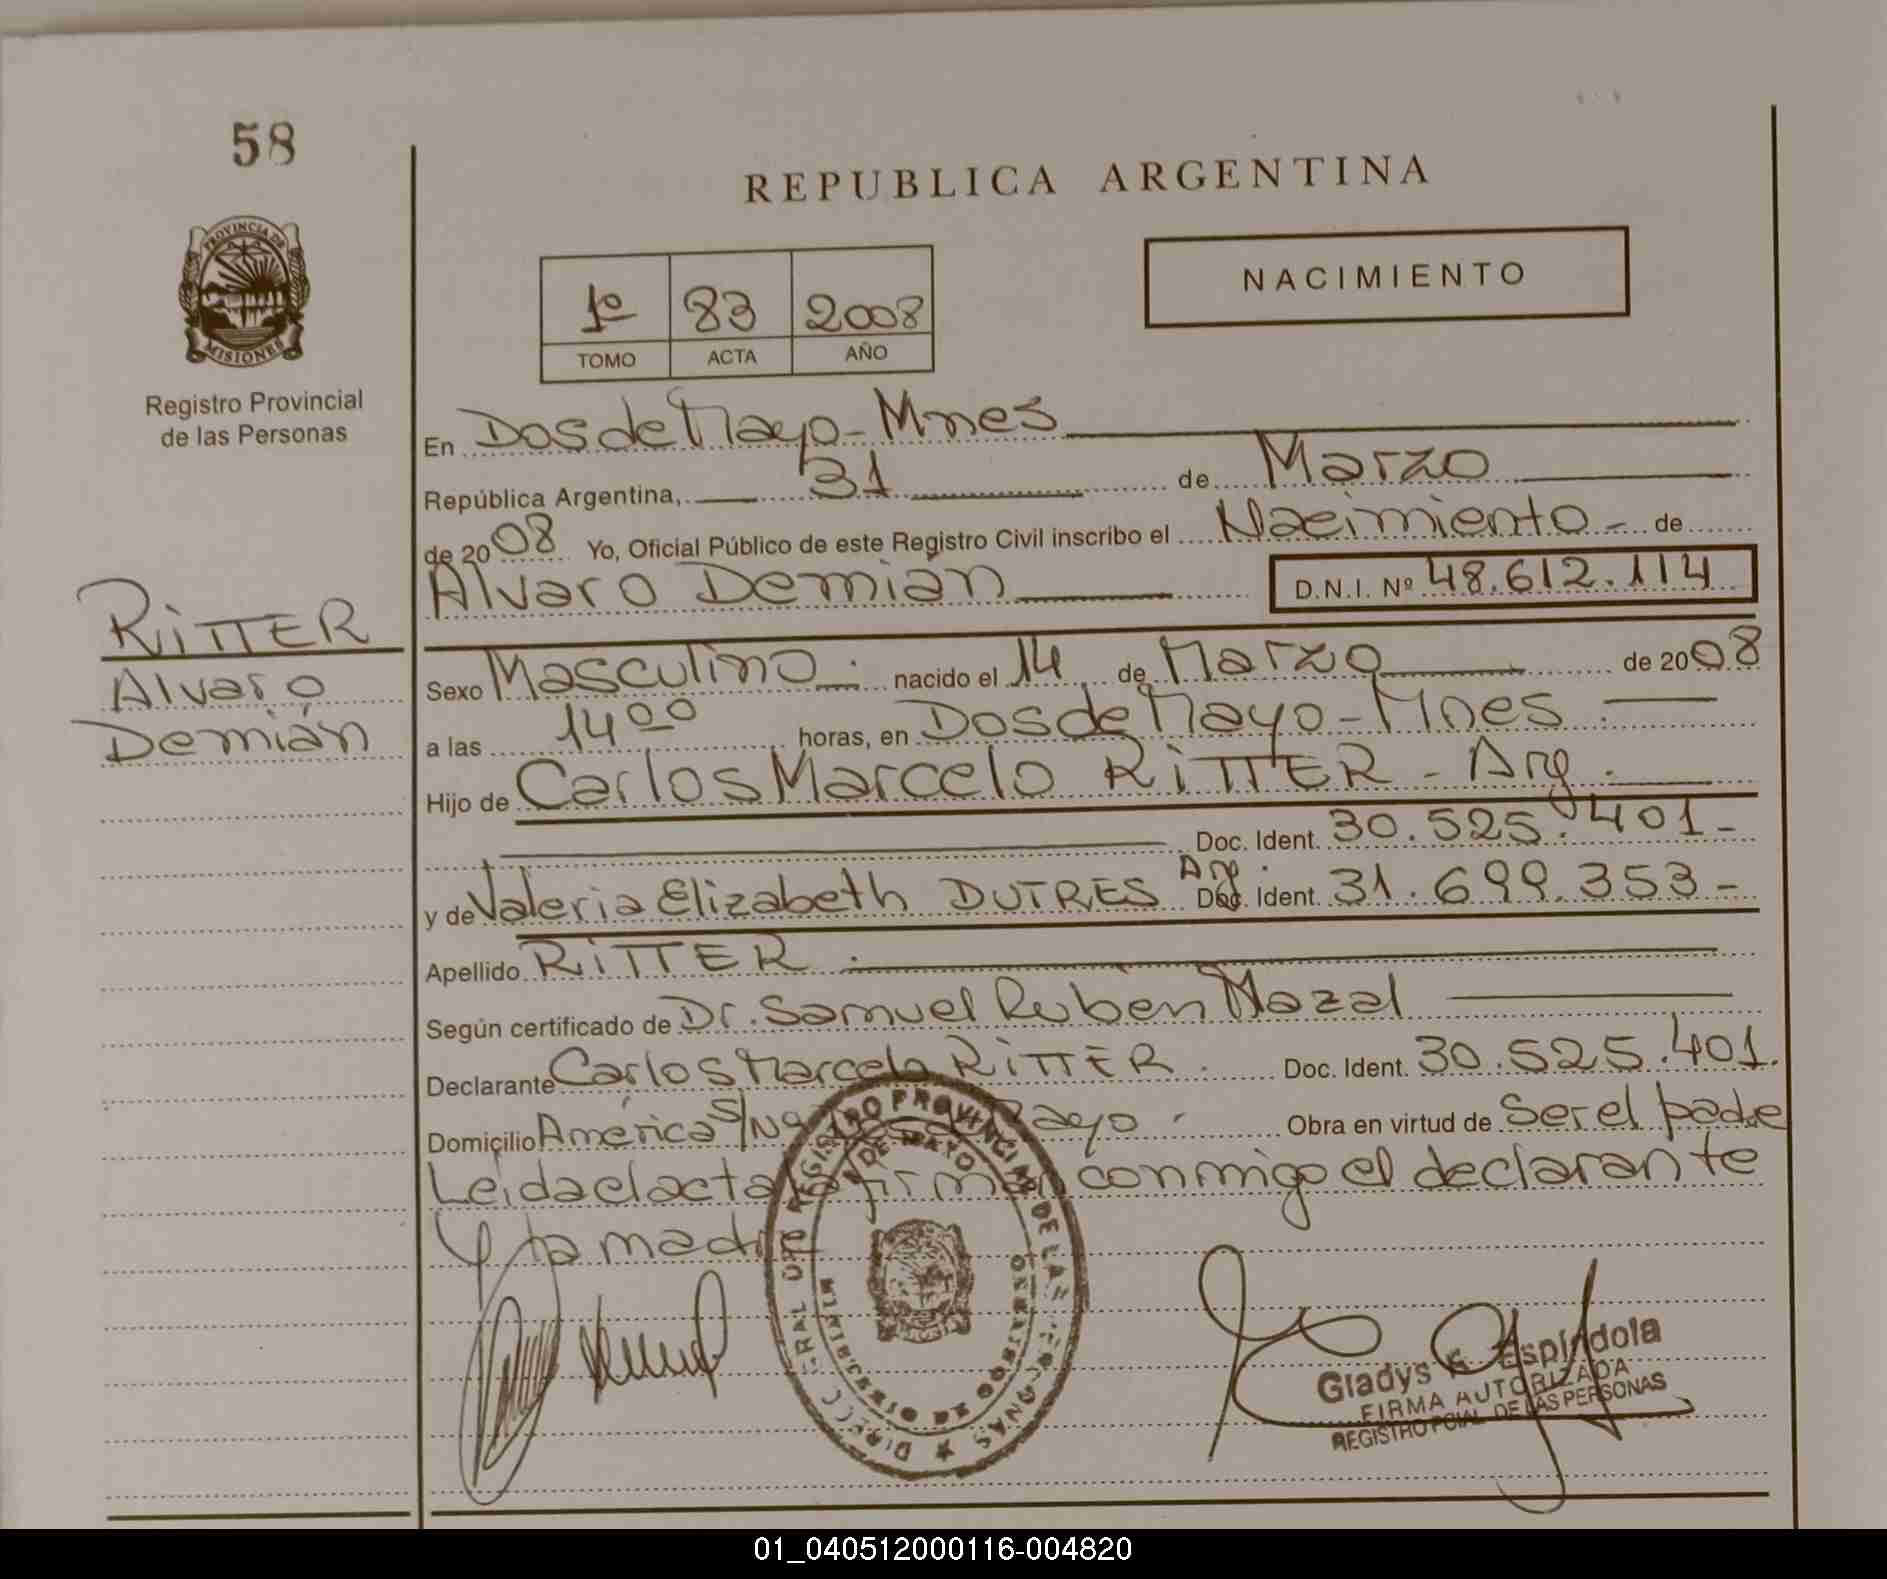 58
REPUBLICA ARGENTINA
PROVINCIA DE
MISIONES
Registro Provincial
de las Personas
1º 83 2008
TOMO ACTA AÑO
NACIMIENTO
En Dos de Mayo - Mnes
República Argentina, 31 de Marzo
de 2008 Yo, Oficial Público de este Registro Civil inscribo el Nacimiento - de
Alvaro Demián D.N.I. Nº 48.612.114
RiTTER
Alvaro
Demián
Sexo Masculino . nacido el 14 de Marzo de 2008
a las 14 00 horas, en Dos de Mayo - Mnes .
Hijo de Carlos Marcelo RiTTER - Arg .
Doc. Ident. 30.525.401-
y de Valeria Elizabeth DUTRES Arg. Doc. Ident. 31.699.353-
Apellido RiTTER .
Según certificado de Dr. Samuel Ruben Mazal
Declarante Carlos Marcelo RiTTER . Doc. Ident. 30.525.401.
Domicilio América S/Nº Mayo . Obra en virtud de Ser el padre
Leida el acta la firman conmigo el declarante
y la madre
REGISTRO PROVINCIAL DE LAS PERSONAS
DE MAYO
Gladys E. Espíndola
FIRMA AUTORIZADA
REGISTRO PCIAL. DE LAS PERSONAS
01_040512000116-004820